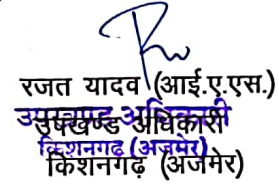 रजत यादव (आई.ए.एस.)
उपखण्ड अधिकारी
उपखण्ड अधिकारी
किशनगढ़ (अजमेर)
किशनगढ़ (अजमेर)